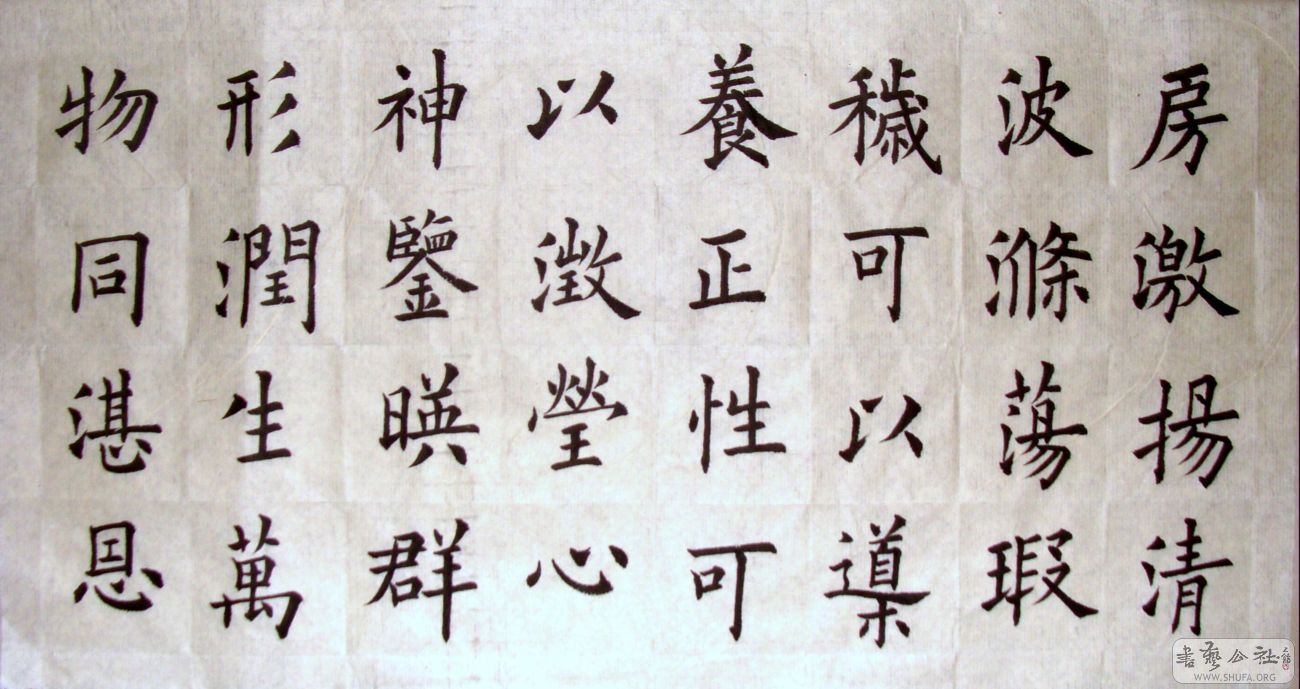 房激揚清
波滌蕩瑕
穢可以導
養正性可
以澂瑩心
神鑒暎群
形潤生萬
物同湛恩
書藝公社
WWW.SHUFA.ORG